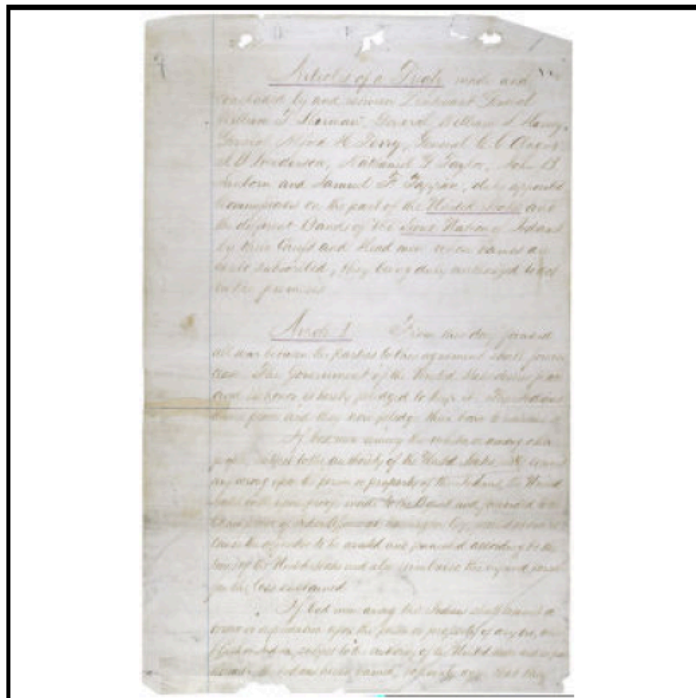 Articles of a Treaty made and
concluded by and between Lieutenant General
William T. Sherman, General William S. Harney,
General Alfred H. Terry, General C. C. Augur
J. B. Henderson, Nathaniel G. Taylor, John B.
Sanborn and Samuel F. Tappan, duly appointed
Commissioners on the part of the United States and
the different Bands of the Sioux Nation of Indians
by their Chiefs and Head men whose names are
hereto subscribed, they being duly authorized to act
in the premises
Article 1. From this day forward
all war between the parties to this agreement shall forever
cease. The Government of the United States desires peace
and its honor is hereby pledged to keep it. The Indians
desire peace and they now pledge their honor to maintain
If bad men among the whites or among other
people, subject to the authority of the United States shall commit
any wrong upon the person or property of the Indians, the United
States will upon proof made to the Agent and forwarded to the
Commissioner of Indian Affairs at Washington City, proceed at once to
cause the offender to be arrested and punished according to the
laws of the United States and also reimburse the injured person
for the loss sustained
If bad men among the Indians shall commit a
wrong or depredation upon the person or property of any one, white
subject to the authority of the United States and at peace